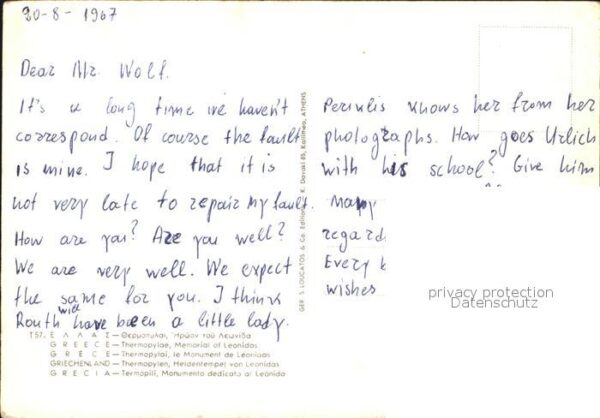 30-8-1967
Dear Mr. Wolf.
It's a long time we haven't
correspond. Of course the fault
is mine. I hope that it is
not very late to repair my fault.
How are you? Are you well?
We are very well. We expect
the same for you. I think
Routh will have been a little lady.
Periklis knows her from her
photographs. How goes Urlich
with his school? Give him
many
regard
Every
wishes
GER. S. LOUCATOS & Co. Editions K. Davaki 85, Kallithea, ATHENS
T57. ΕΛΛΑΣ — Θερμοπύλαι, Ἡρῷον τοῦ Λεωνίδα
GREECE — Thermopylae, Memorial of Leonidas
GRECE — Thermopylai, le Monument de Leonidas
GRIECHENLAND — Thermopylen, Heldentempel von Leonidas
GRECIA — Termopili, Monumento dedicato al Leonida
privacy protection
Datenschutz